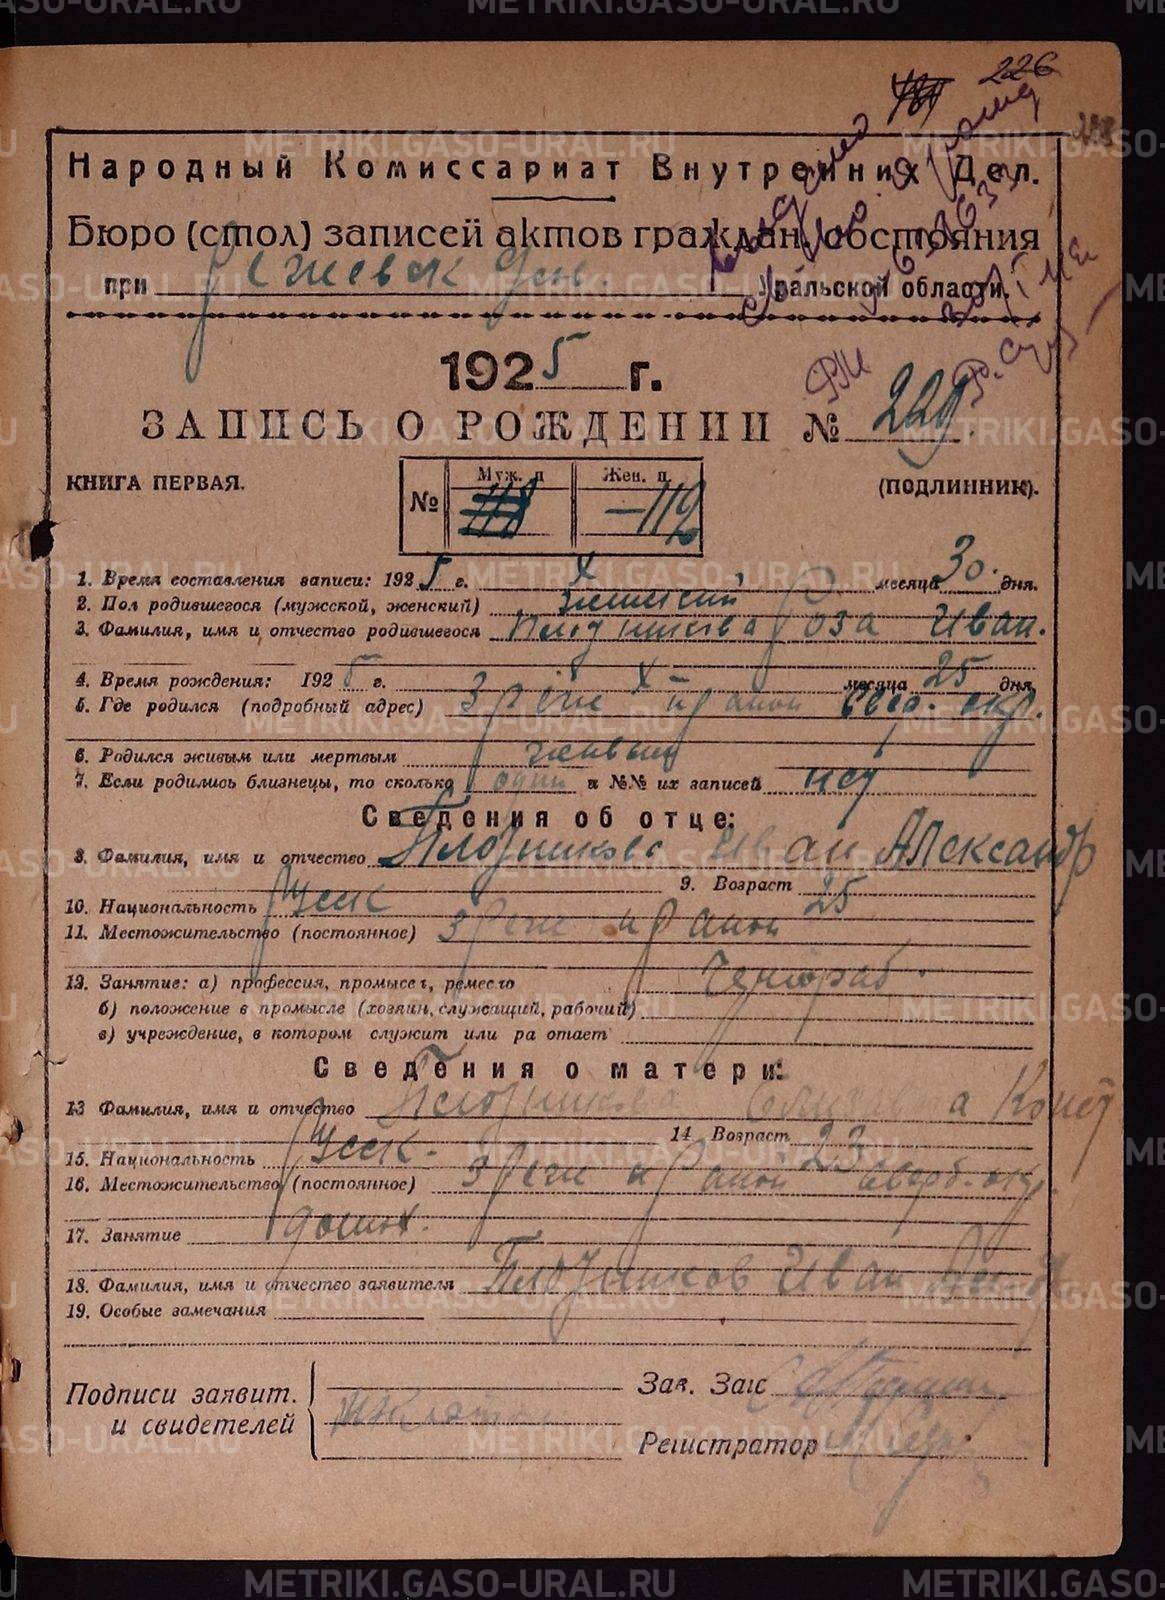 226
Народный Комиссариат Внутренних Дел.
Бюро (стол) записей актов граждан. состояния
при Режевск Уральской области.
1925 г.
ЗАПИСЬ О РОЖДЕНИИ № 229
КНИГА ПЕРВАЯ.
№ Муж. п Жен. п.
118 —112
(подлинник).
1. Время составления записи: 1925 г. X месяца 30. дня.
2. Пол родившегося (мужской, женский) женский
3. Фамилия, имя и отчество родившегося Плотникова Роза Иван.
4. Время рождения: 1925 г. X месяца 25 дня.
5. Где родился (подробный адрес) З Реже ст район Сверд. окр.
6. Родился живым или мертвым живым
7. Если родились близнецы, то сколько один и №№ их записей нет
Сведения об отце:
8. Фамилия, имя и отчество Плотников Иван Александр
9. Возраст 25
10. Национальность Русск
11. Местожительство (постоянное) З Реже район
12. Занятие: а) профессия, промысел, ремесло Чернораб.
б) положение в промысле (хозяин, служащий, рабочий)
в) учреждение, в котором служит или ра отает
Сведения о матери:
13 Фамилия, имя и отчество Плотникова Елизавета Конст
14 Возраст 23
15. Национальность Русск.
16. Местожительство (постоянное) З Реже район Свердл. окр.
17. Занятие домох.
18. Фамилия, имя и отчество заявителя Плотников Иван
19. Особые замечания
Подписи заявит.
и свидетелей
Зав. Загс
Регистратор